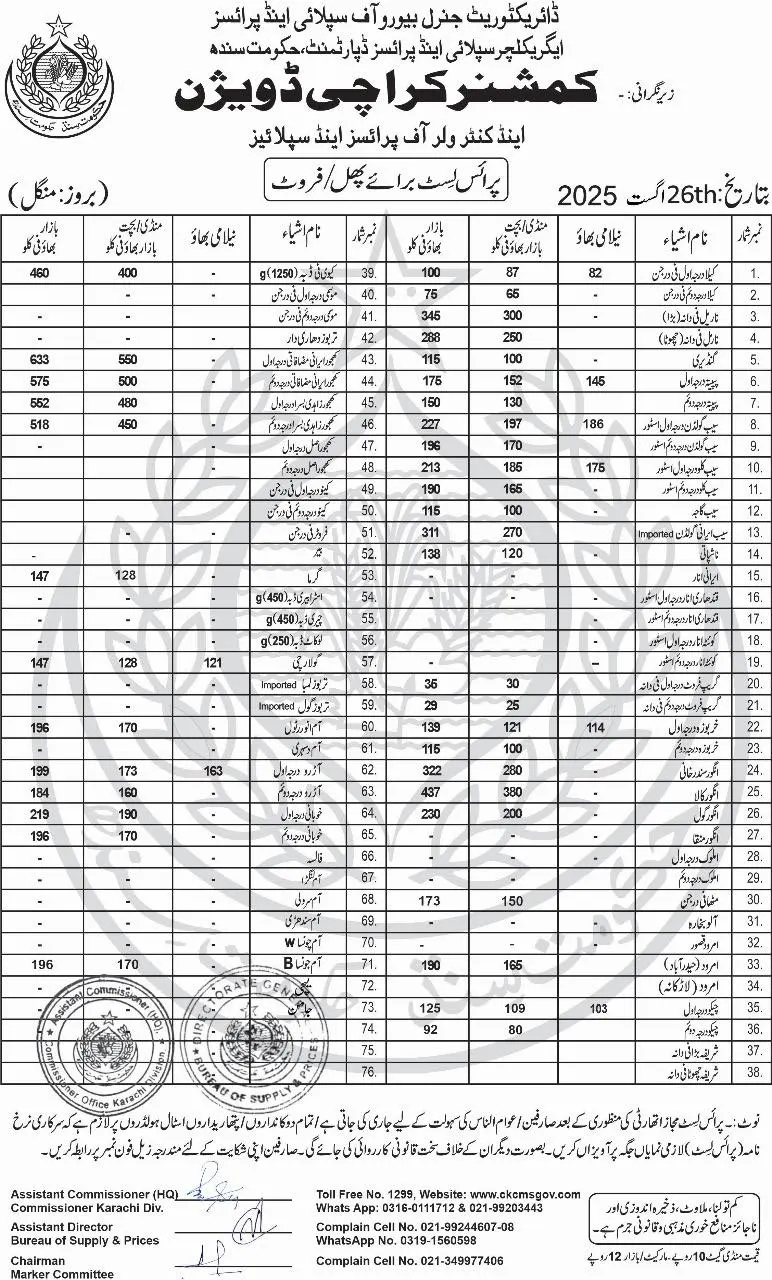 ڈائریکٹوریٹ جنرل بیورو آف سپلائی اینڈ پرائسز
ایگریکلچر سپلائی اینڈ پرائسز ڈپارٹمنٹ، حکومت سندھ
زیر نگرانی: -
کمشنر کراچی ڈویژن
اینڈ کنٹرولر آف پرائسز اینڈ سپلائیز
بتاریخ: 26th اگست 2025
پرائس لسٹ برائے پھل / فروٹ
(بروز: منگل)
نمبر شمار نام اشیاء نیلامی بھاؤ منڈی/بچت بازار بھاؤ فی کلو بازار بھاؤ فی کلو نمبر شمار نام اشیاء نیلامی بھاؤ منڈی/بچت بازار بھاؤ فی کلو بازار بھاؤ فی کلو
1. کیلا درجہ اول فی درجن 82 87 100 39. کیوی فی ڈبہ (1250)g - 400 460
2. کیلا درجہ دوئم فی درجن - 65 75 40. موسمی درجہ اول فی درجن - -
3. ناریل فی دانہ (بڑا) - 300 345 41. موسمی درجہ دوئم فی درجن - -
4. ناریل فی دانہ (چھوٹا) - 250 288 42. تربوز دھاری دار - - -
5. گنڈیری - 100 115 43. کھجور ایرانی مضافاتی درجہ اول - 550 633
6. پپیتہ درجہ اول 145 152 175 44. کھجور ایرانی مضافاتی درجہ دوئم - 500 575
7. پپیتہ درجہ دوئم - 130 150 45. کھجور زاہدی بسرا درجہ اول - 480 552
8. سیب گولڈن درجہ اول اسٹور 186 197 227 46. کھجور زاہدی بسرا درجہ دوئم - 450 518
9. سیب گولڈن درجہ دوئم اسٹور - 170 196 47. کھجور اصل درجہ اول - - -
10. سیب کلو درجہ اول اسٹور 175 185 213 48. کھجور اصل درجہ دوئم - - -
11. سیب کلو درجہ دوئم اسٹور - 165 190 49. کینو درجہ اول فی درجن
12. سیب گاجہ - 100 115 50. کینو درجہ دوئم فی درجن
13. سیب ایرانی گولڈن Imported - 270 311 51. فروٹر فی درجن - -
14. ناشپاتی - 120 138 52. بیر -
15. ایرانی انار - - - 53. گرما - 128 147
16. قندھاری انار درجہ اول اسٹور - - - 54. اسٹرابیری ڈبہ (450)g - - -
17. قندھاری انار درجہ دوئم اسٹور - - - 55. چیری ڈبہ (450)g - - -
18. کوئٹہ انار درجہ اول اسٹور 56. لوکاٹ ڈبہ (250)g - - -
19. کوئٹہ انار درجہ دوئم اسٹور - - - 57. گولارچی 121 128 147
20. گریپ فروٹ درجہ اول فی دانہ - 30 35 58. تربوز لمبا Imported - - -
21. گریپ فروٹ درجہ دوئم فی دانہ - 25 29 59. تربوز گول Imported - - -
22. خربوزہ درجہ اول 114 121 139 60. آم انور رٹول - 170 196
23. خربوزہ درجہ دوئم - 100 115 61. آم دسہری - - -
24. انگور سندرخانی - 280 322 62. آڑو درجہ اول 163 173 199
25. انگور کالا - 380 437 63. آڑو درجہ دوئم - 160 184
26. انگور گول - 200 230 64. خوبانی درجہ اول - 190 219
27. انگور منقا - - - 65. خوبانی درجہ دوئم - 170 196
28. املوک درجہ اول - - - 66. فالسہ - - -
29. املوک درجہ دوئم - - 67. آم لنگڑا - - -
30. مٹھا فی درجن - 150 173 68. آم سرولی - - -
31. آلو بخارہ - - - 69. آم سندھڑی - - -
32. امرود قصور - - - 70. آم چونسا W - - -
33. امرود (حیدرآباد) - 165 190 71. آم چونسا B - 170 196
34. امرود (لاڑکانہ) 72. لیچی
35. چیکو درجہ اول 103 109 125 73. جامن
36. چیکو درجہ دوئم - 80 92 74.
37. شریفہ بڑا فی دانہ 75.
38. شریفہ چھوٹا فی دانہ 76.
Assistant Commissioner (HQ). Commissioner Office Karachi Division
DIRECTORATE GENERAL BUREAU OF SUPPLY & PRICES
نوٹ:۔ پرائس لسٹ مجاز اتھارٹی کی منظوری کے بعد صارفین / عوام الناس کی سہولت کے لیے جاری کی جاتی ہے / تمام دوکانداروں / پتھاریداروں اسٹال ہولڈروں پر لازم ہے کہ سرکاری نرخ
نامہ (پرائس لسٹ) لازمی نمایاں جگہ پر آویزاں کریں۔ بصورت دیگر ان کے خلاف سخت قانونی کارروائی کی جائے گی۔ صارفین اپنی شکایت کے لئے مندرجہ زیل فون نمبر پر رابطہ کریں۔
Assistant Commissioner (HQ)
Commissioner Karachi Div.
Assistant Director
Bureau of Supply & Prices
Chairman
Marker Committee
Toll Free No. 1299, Website: www.ckcmsgov.com
Whats App: 0316-0111712 & 021-99203443
Complain Cell No. 021-99244607-08
WhatsApp No. 0319-1560598
Complain Cell No. 021-349977406
کم تولنا، ملاوٹ، ذخیرہ اندوزی اور
ناجائز منافع خوری مذہبی و قانونی جرم ہے۔
قیمت منڈی گیٹ 10 روپے۔ مارکیٹ / بازار 12 روپے